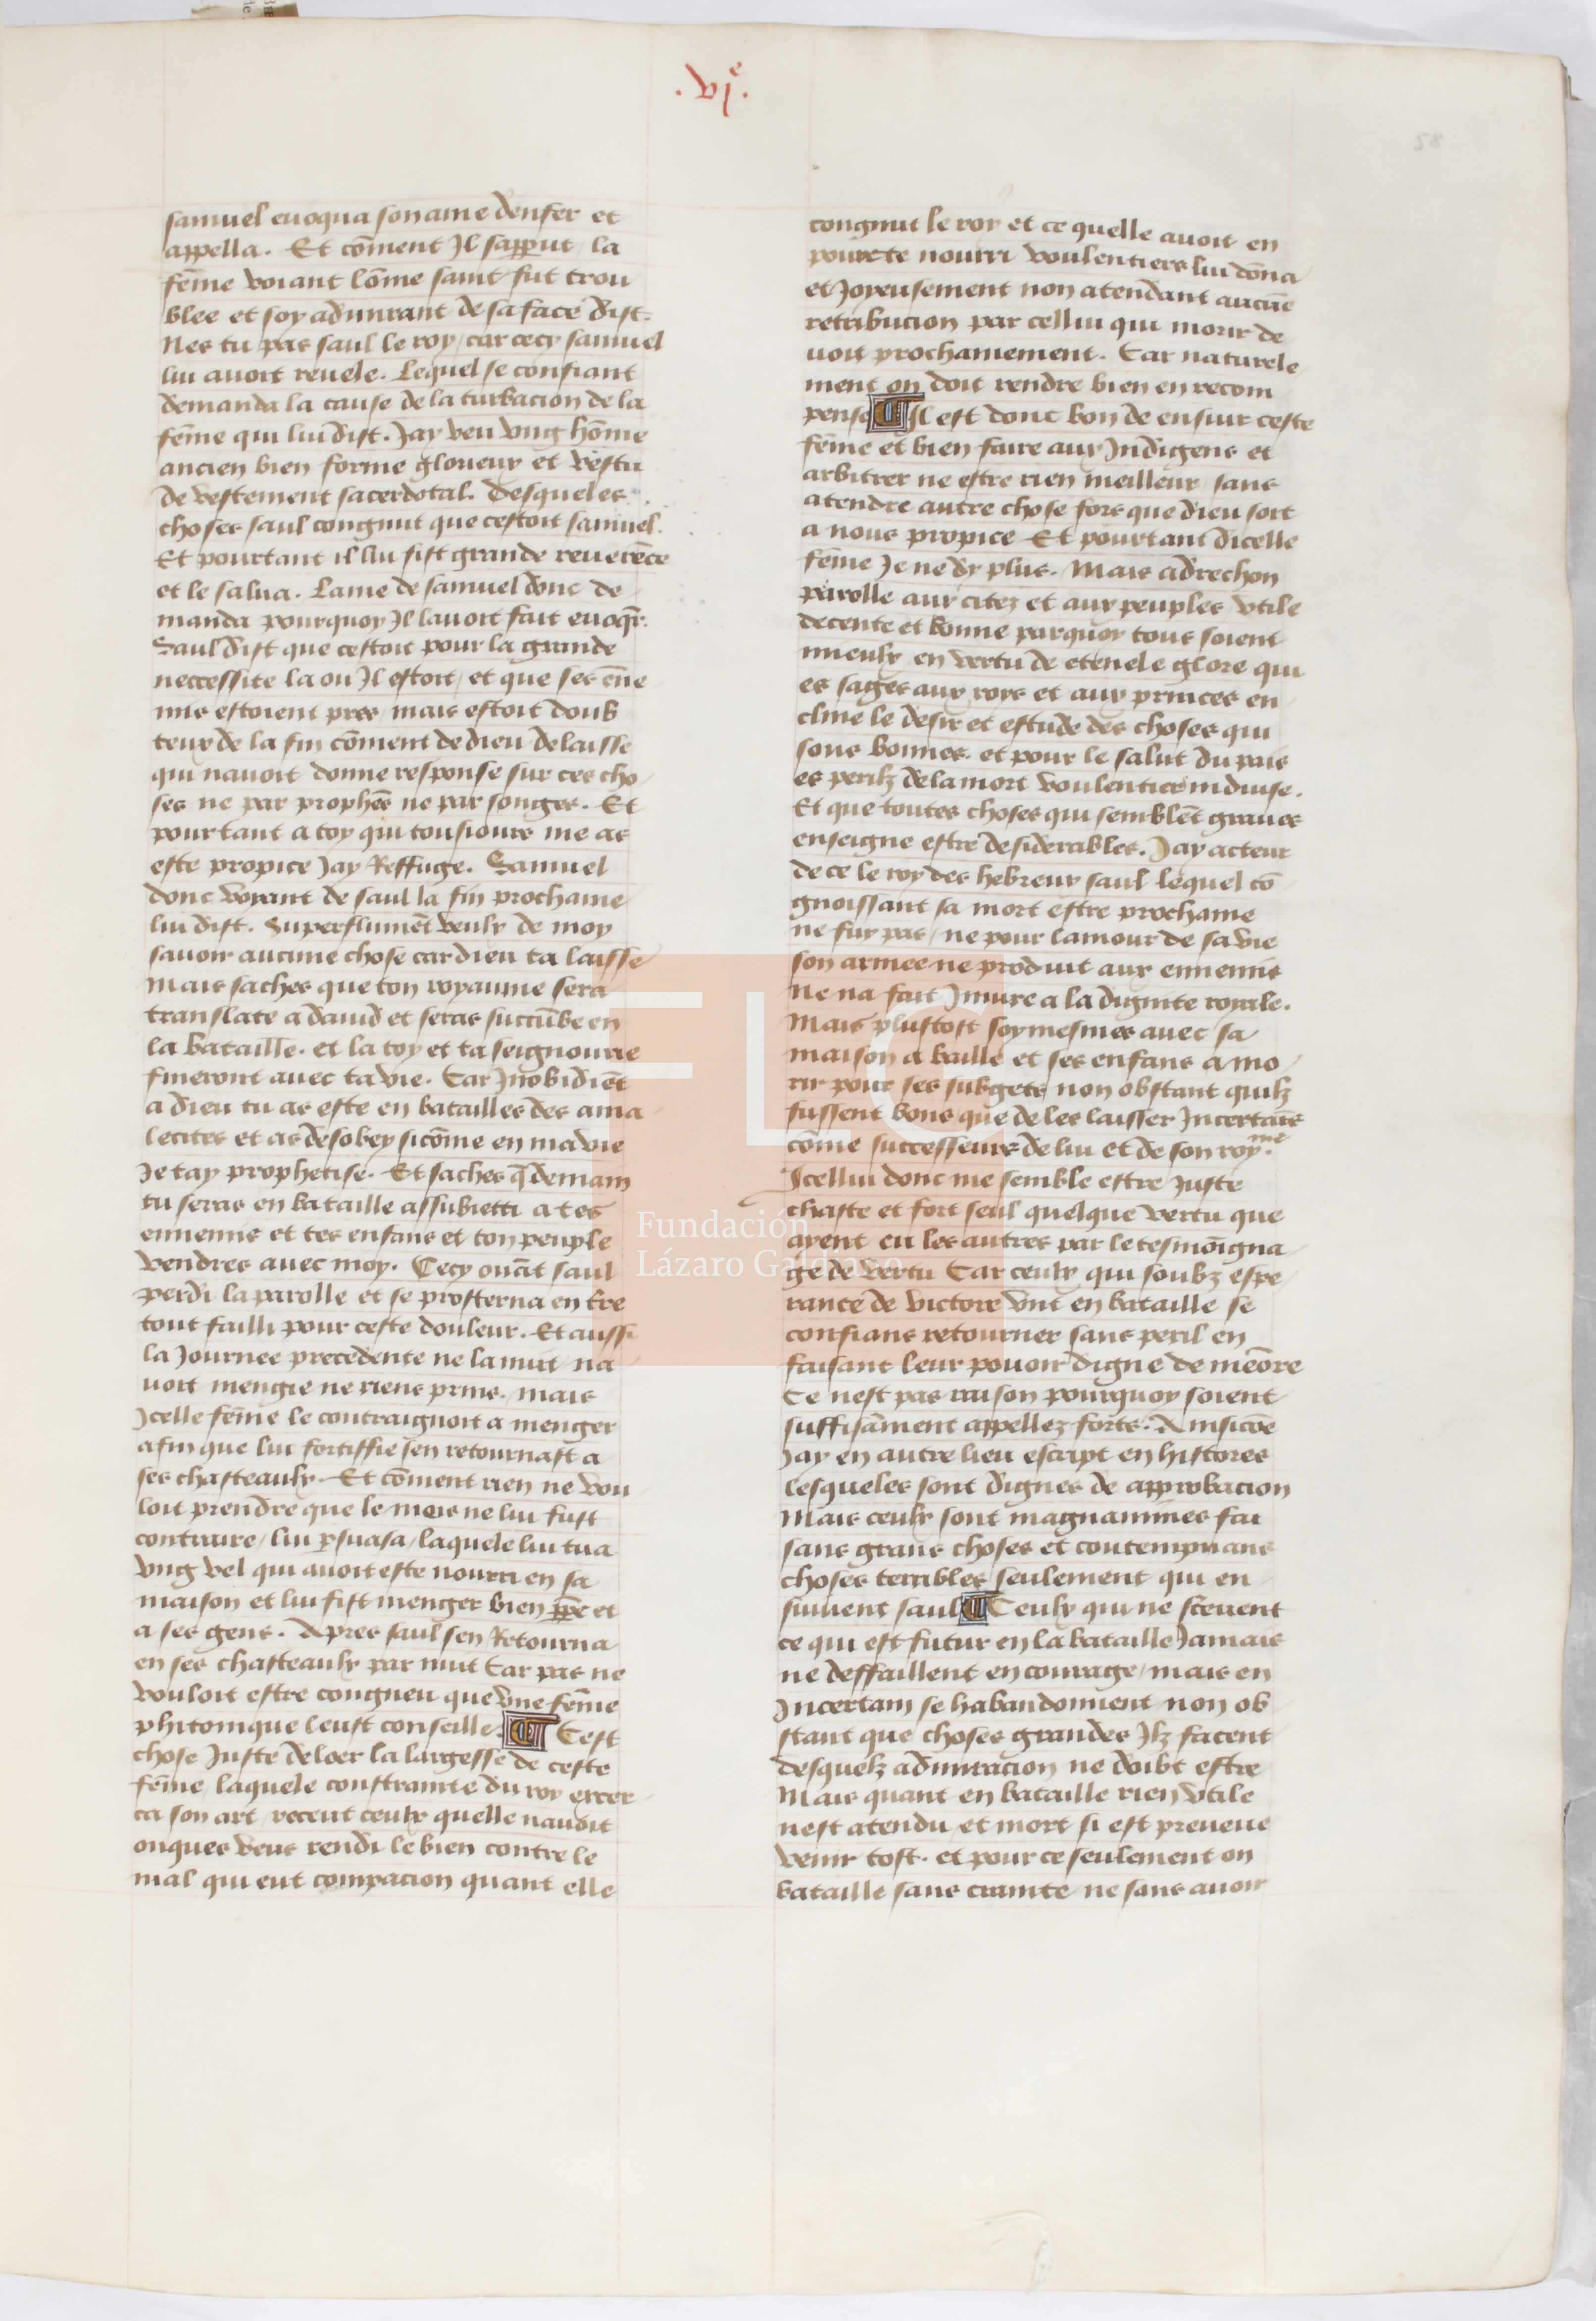 .vje.
58
samuel euoqua son ame denfer et
appella. Et cōment Jl sapparut la
fēme voiant lōme saint fut trou
blee et soy admirant de sa face dist.
Nes tu pas saul le roy / car cecy samuel
lui auoit reuele. Lequel se confiant
demanda la cause de la turbacion de la
fēme qui lui dist. Jay veu vng hōme
ancien bien forme glorieux et vestu
de vestement sacerdotal. Desqueles
choses saul congnut que cestoit samuel.
Et pourtant il lui fist grande reuerēce
et le salua. Lame de samuel donc de
manda pourquoy Jl lauoit fait euoqr̄.
Saul dist que cestoit pour la grande
neccessite la ou Jl estoit / et que ses ēne
mis estoient pres / mais estoit doub
teux de la fin cōment de dieu delaisse
qui nauoit donne response sur ces cho
ses ne par prophēs ne par songes. Et
pourtant a toy qui tousiours me as
este propice Jay Reffuge. Samuel
donc voyant de saul la fin prochaine
lui dist. Superflumēt veulx de moy
sauoir aucune chose car dieu ta laisse
mais saches que ton royaume sera
translate a dauid et seras succūbe en
la bataille. et la toy et ta seignourie
fineront auec ta vie. Car Jnobidiēt
a dieu tu as este en batailles des ama
lecites et as desobey sicōme en ma vie
Je tay prophetise. Et saches q̄ demain
tu seras en bataille assubietti a tes
ennemis et tes enfans et ton peuple
vendres auec moy. Cecy ouāt saul
perdi la parolle et se prosterna en tre
tout failli pour ceste douleur. Et aussi
la Journee precedente ne la nuit na
uoit mengie ne riens prins. mais
Jcelle fēme le contraignoit a menger
afin que lui fortiffie sen retournast a
ses chasteaulx. Et cōment rien ne vou
loit prendre que le mors ne lui fust
contraire / lui p̄suasa / laquele lui tua
vng vel qui auoit este nourri en sa
maison et lui fist menger bien pp̄e et
a ses gens. Apres saul sen Retourna
en ses chasteaulx par nuit Car pas ne
vouloit estre congneu que vne fēme
phitonique leust conseille. ¶ Cest
chose Juste de loer la largesse de ceste
fēme laquele constrainte du roy exer
ca son art / receut ceulx quelle nauoit
onques veus rendi le bien contre le
mal qui eut compacion quant elle
congnut le roy et ce quelle auoit en
pourete nourri voulentiers lui dōna
et Joyeusement non atendant aucūe
retribucion par cellui qui morir de
uoit prochainement. Car naturele
ment on doit rendre bien en recom
pense ¶ Jl est donc bon de ensuir ceste
fēme et bien faire aux Jndigens et
arbitrer ne estre rien meilleur sans
atendre autre chose fors que dieu soit
a nous propice Et pourtant dicelle
fēme Je ne dy plus. Mais adrechon
parolle aux citez et aux peuples vtile
decente et bonne parquoy tous soient
mieulx en vertu de etenele glore qui
es sages aux roys et aux princes en
cline le desir et estude des choses qui
sons bonnes. et pour le salut du pais
es perilz de la mort voulentiers induise.
Et que toutes choses qui semblēt graues
enseigne estre desiderables. Jay acteur
de ce le roy des hebreux saul lequel cō
gnoissant sa mort estre prochaine
ne fuy pas / ne pour lamour de sa vie
son armee ne produit aux ennemis
Ne na fait Jniure a la dignite royale.
Mais plustost soymesmes auec sa
maison a baille et ses enfans a mo
rir pour ses subgets non obstant quilz
fussent bons que de les laisser Jncertais
cōme successeurs de lui et de son roy.me
Jcellui donc me semble estre Juste
chaste et fort seul quelque vertu que
ayent eu les autres par le tesmoīgna
ge de vertu Car ceulx qui soubz espe
rance de victore vnt en bataille se
confians retourner sans peril en
faisant leur pouoir digne de meōre
Ce nest pas raison pourquoy soient
suffisāment appellez forts. Ainsicōe
Jay en autre lieu escript en histores
lesqueles sont dignes de approbacion
Mais ceulx sont magnanimes fai
sans grans choses et contempnans
choses terribles seulement qui en
suiuent saul ¶ Ceulx qui ne sceuent
ce qui est futur en la bataille Jamais
ne deffaillent en courage / mais en
Jncertain se habandonnent non ob
stant que choses grandes Jlz facent
desquelz admiracion ne doibt estre
Mais quant en bataille rien vtile
nest atendu et mort si est preueue
venir tost. et pour ce seulement on
bataille sans crainte ne sans auoir
Fundación
Lázaro Galdiano
FLG